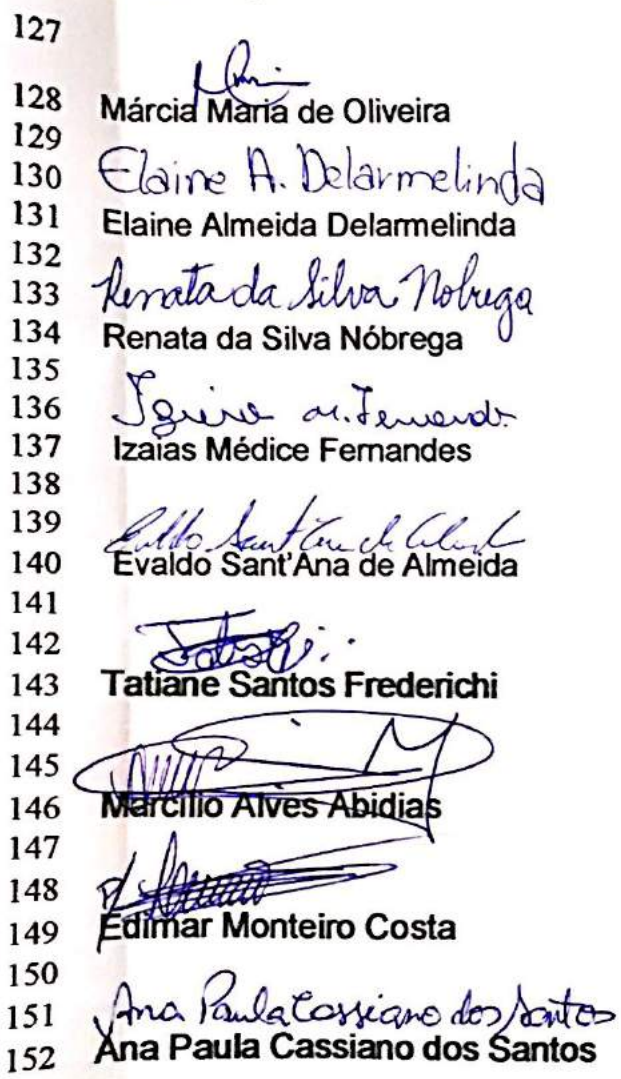 127
128 Márcia Maria de Oliveira
129
130 Elaine A. Delarmelinda
131 Elaine Almeida Delarmelinda
132
133 Renata da Silva Nobrega
134 Renata da Silva Nóbrega
135
136
137 Izaias Médice Fernandes
138
139
140 Evaldo Sant'Ana de Almeida
141
142
143 Tatiane Santos Frederichi
144
145
146 Marcilio Alves Abidias
147
148
149 Edimar Monteiro Costa
150
151 Ana Paula Cassiano dos Santos
152 Ana Paula Cassiano dos Santos